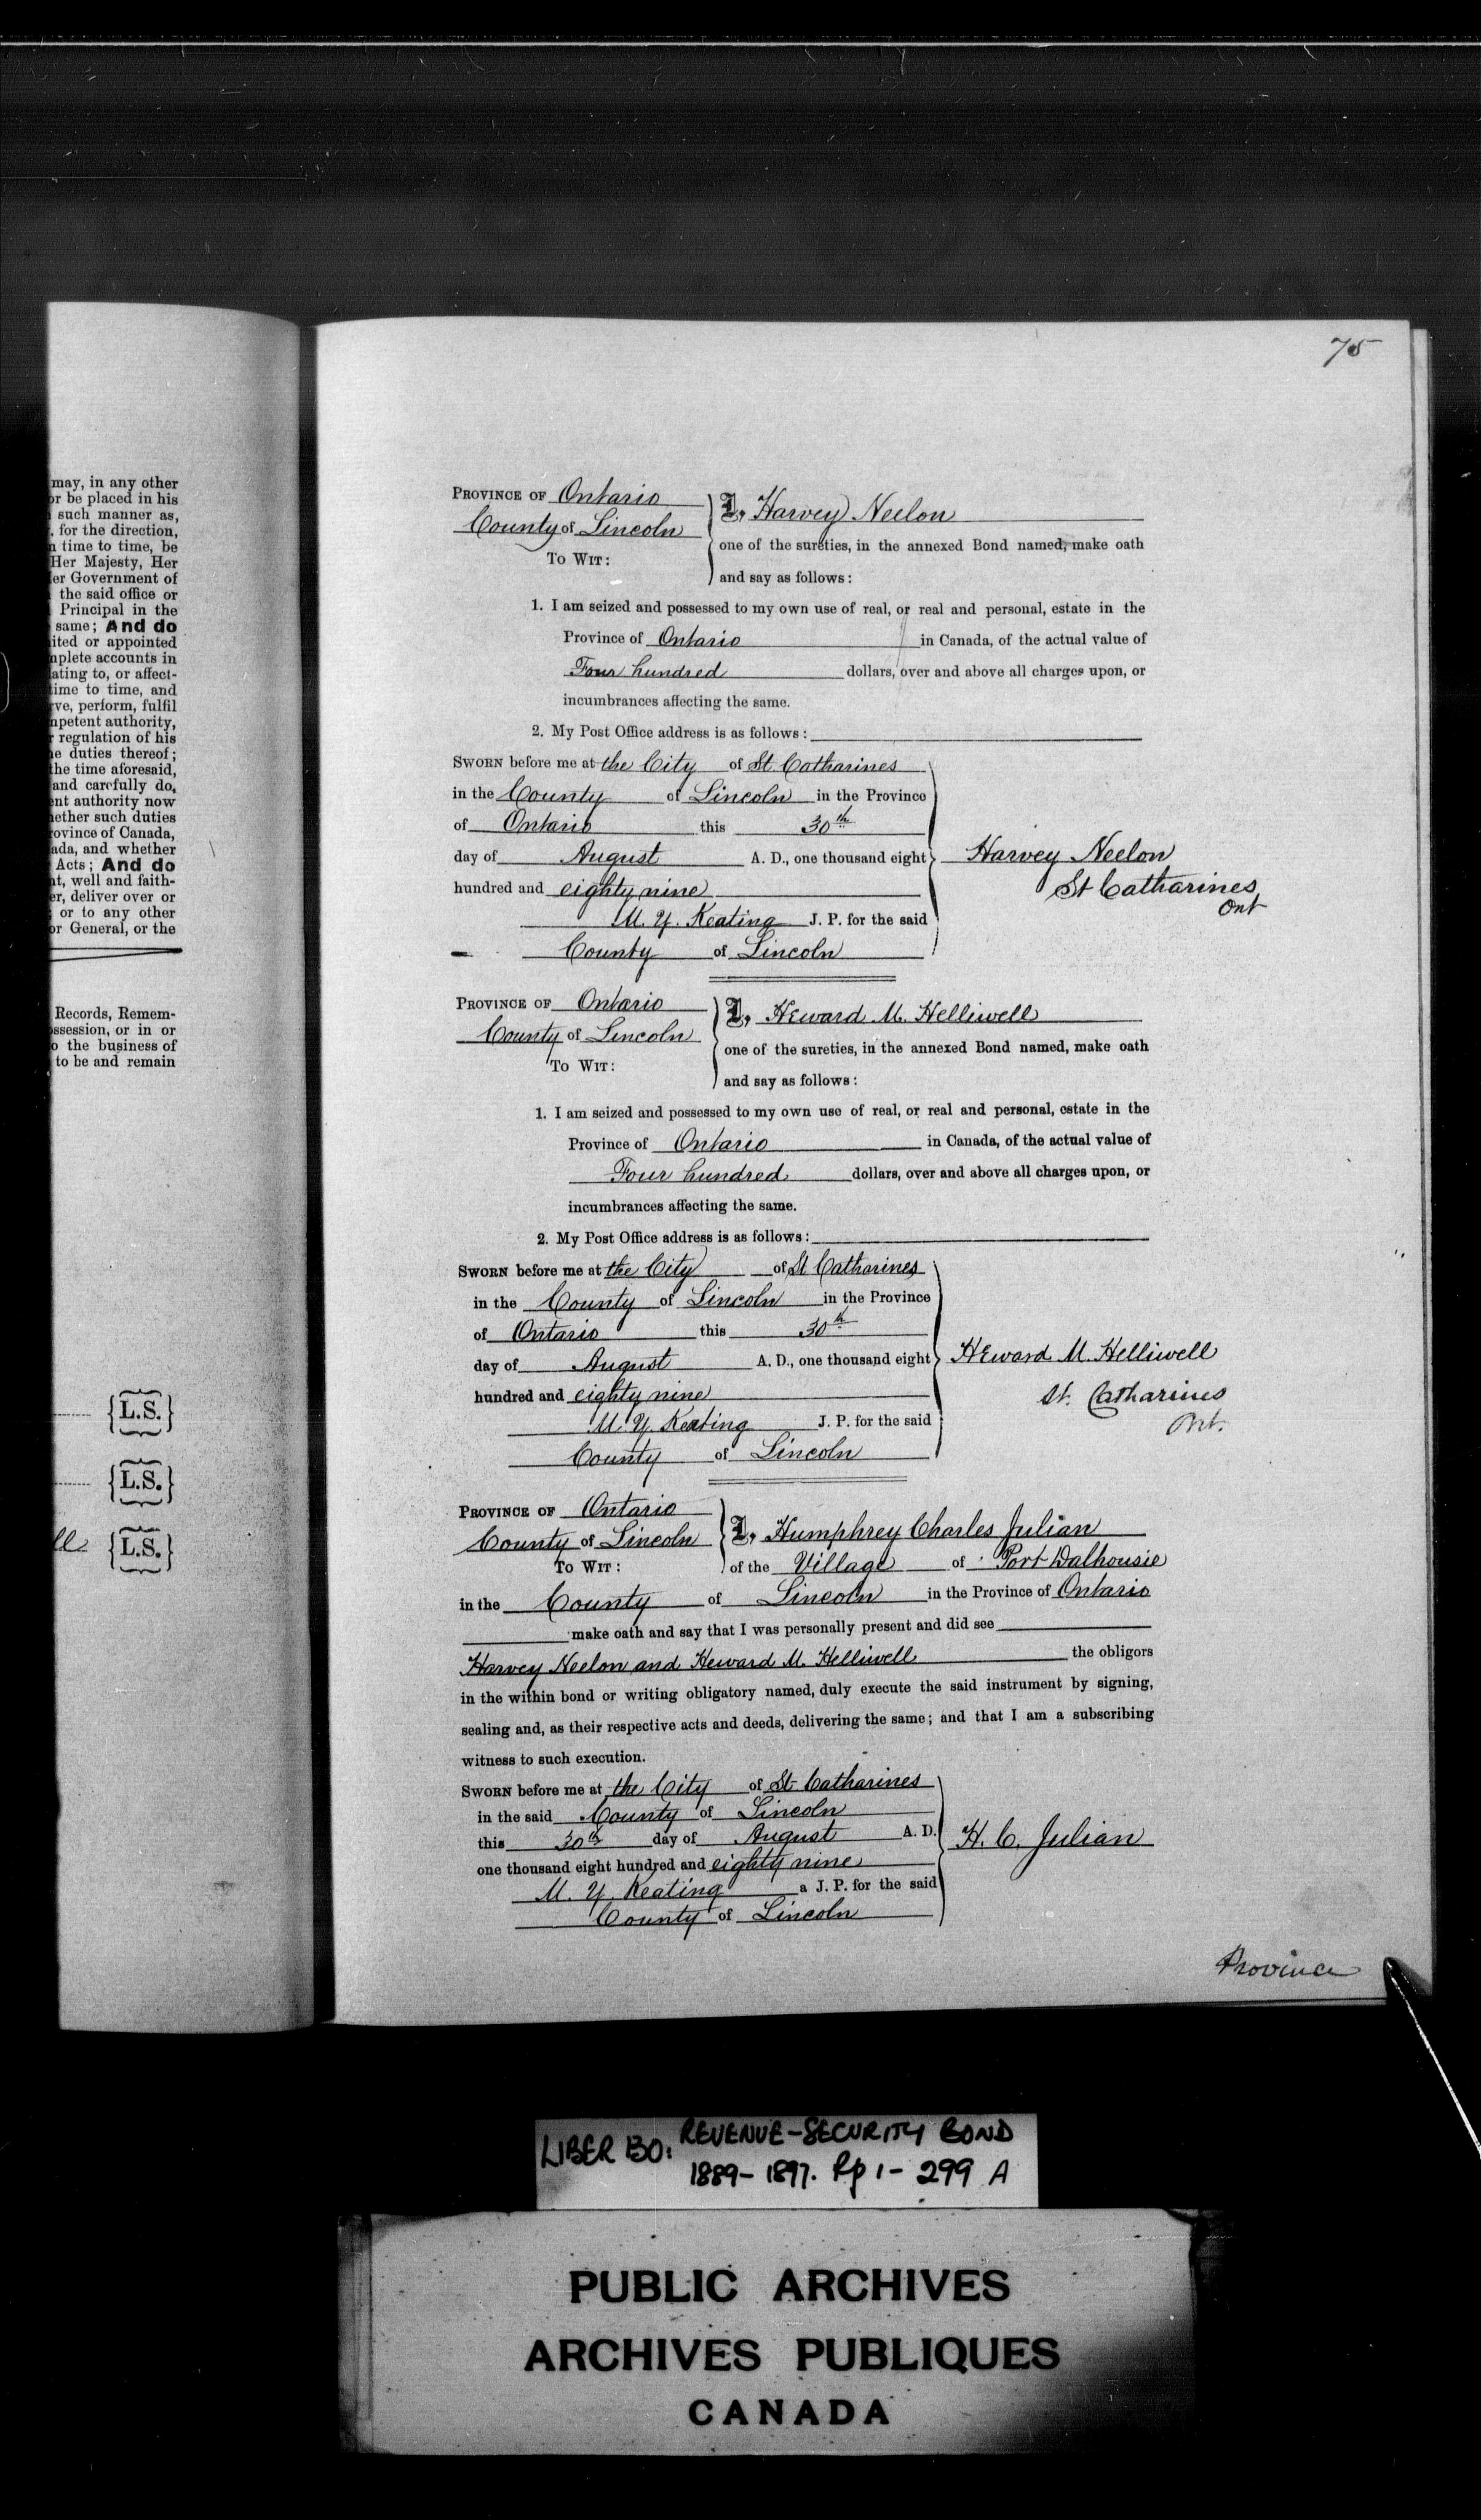 75
may, in any other
or be placed in his
such manner as,
for the direction,
time to time, be
Her Majesty, Her
Government of
the said office or
Principal in the
same; And do
or appointed
accounts in
to, or affect-
time to time, and
perform, fulfil
authority,
regulation of his
duties thereof;
the time aforesaid,
and carefully do,
authority now
whether such duties
of Canada,
and whether
Acts; And do
well and faith-
deliver over or
or to any other
or General, or the
Records, Remem-
or in or
the business of
to be and remain
{L.S.}
{L.S.}
{L.S.}
PROVINCE OF Ontario
County of Lincoln
TO WIT:
I, Harvey Neelon
one of the sureties, in the annexed Bond named, make oath
and say as follows:
1. I am seized and possessed to my own use of real, or real and personal, estate in the
Province of Ontario in Canada, of the actual value of
Four hundred dollars, over and above all charges upon, or
incumbrances affecting the same.
2. My Post Office address is as follows:
SWORN before me at the City of St. Catharines
in the County of Lincoln in the Province
of Ontario this 30th
day of August A. D., one thousand eight
hundred and eighty nine
M. Y. Keating J. P. for the said
County of Lincoln
Harvey Neelon
St Catharines
Ont
PROVINCE OF Ontario
County of Lincoln
TO WIT:
I, Heward M. Helliwell
one of the sureties, in the annexed Bond named, make oath
and say as follows:
1. I am seized and possessed to my own use of real, or real and personal, estate in the
Province of Ontario in Canada, of the actual value of
Four hundred dollars, over and above all charges upon, or
incumbrances affecting the same.
2. My Post Office address is as follows:
SWORN before me at the City of St Catharines
in the County of Lincoln in the Province
of Ontario this 30th
day of August A. D., one thousand eight
hundred and eighty nine
M. Y. Keating J. P. for the said
County of Lincoln
Heward M. Helliwell
St. Catharines
Ont.
PROVINCE OF Ontario
County of Lincoln
TO WIT:
I, Humphrey Charles Julian
of the Village of Port Dalhousie
in the County of Lincoln in the Province of Ontario
make oath and say that I was personally present and did see
Harvey Neelon and Heward M. Helliwell the obligors
in the within bond or writing obligatory named, duly execute the said instrument by signing,
sealing and, as their respective acts and deeds, delivering the same; and that I am a subscribing
witness to such execution.
SWORN before me at the City of St Catharines
in the said County of Lincoln
this 30th day of August A. D.
one thousand eight hundred and eighty nine
M. Y. Keating a J. P. for the said
County of Lincoln
H. C. Julian
Province
LIBER 130: REVENUE-SECURITY BOND
1889-1897. Pp 1-299 A
PUBLIC ARCHIVES
ARCHIVES PUBLIQUES
CANADA